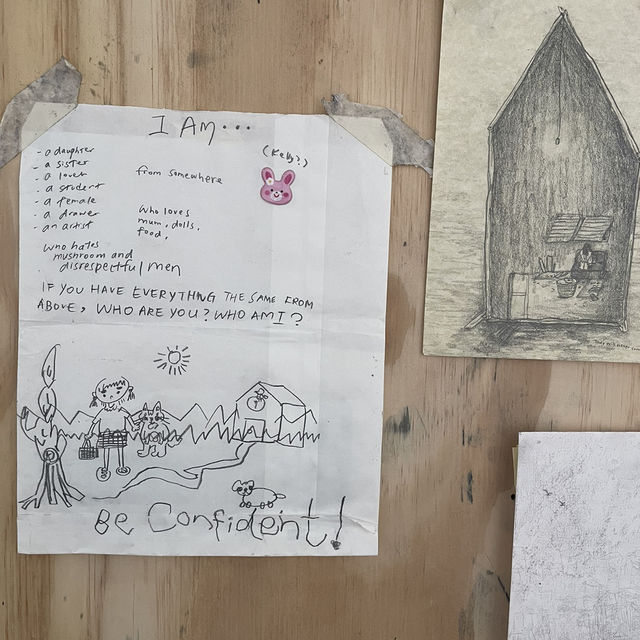 I AM...
(Kelly?)
- a daughter
- a sister
- a lover
- a student
- a female
- a drawer
- an artist
from somewhere
who loves
mum, dolls,
food,
who hates
mushroom and
disrespectful men
IF YOU HAVE EVERYTHING THE SAME FROM
ABOVE, WHO ARE YOU? WHO AM I?
Be Confident!